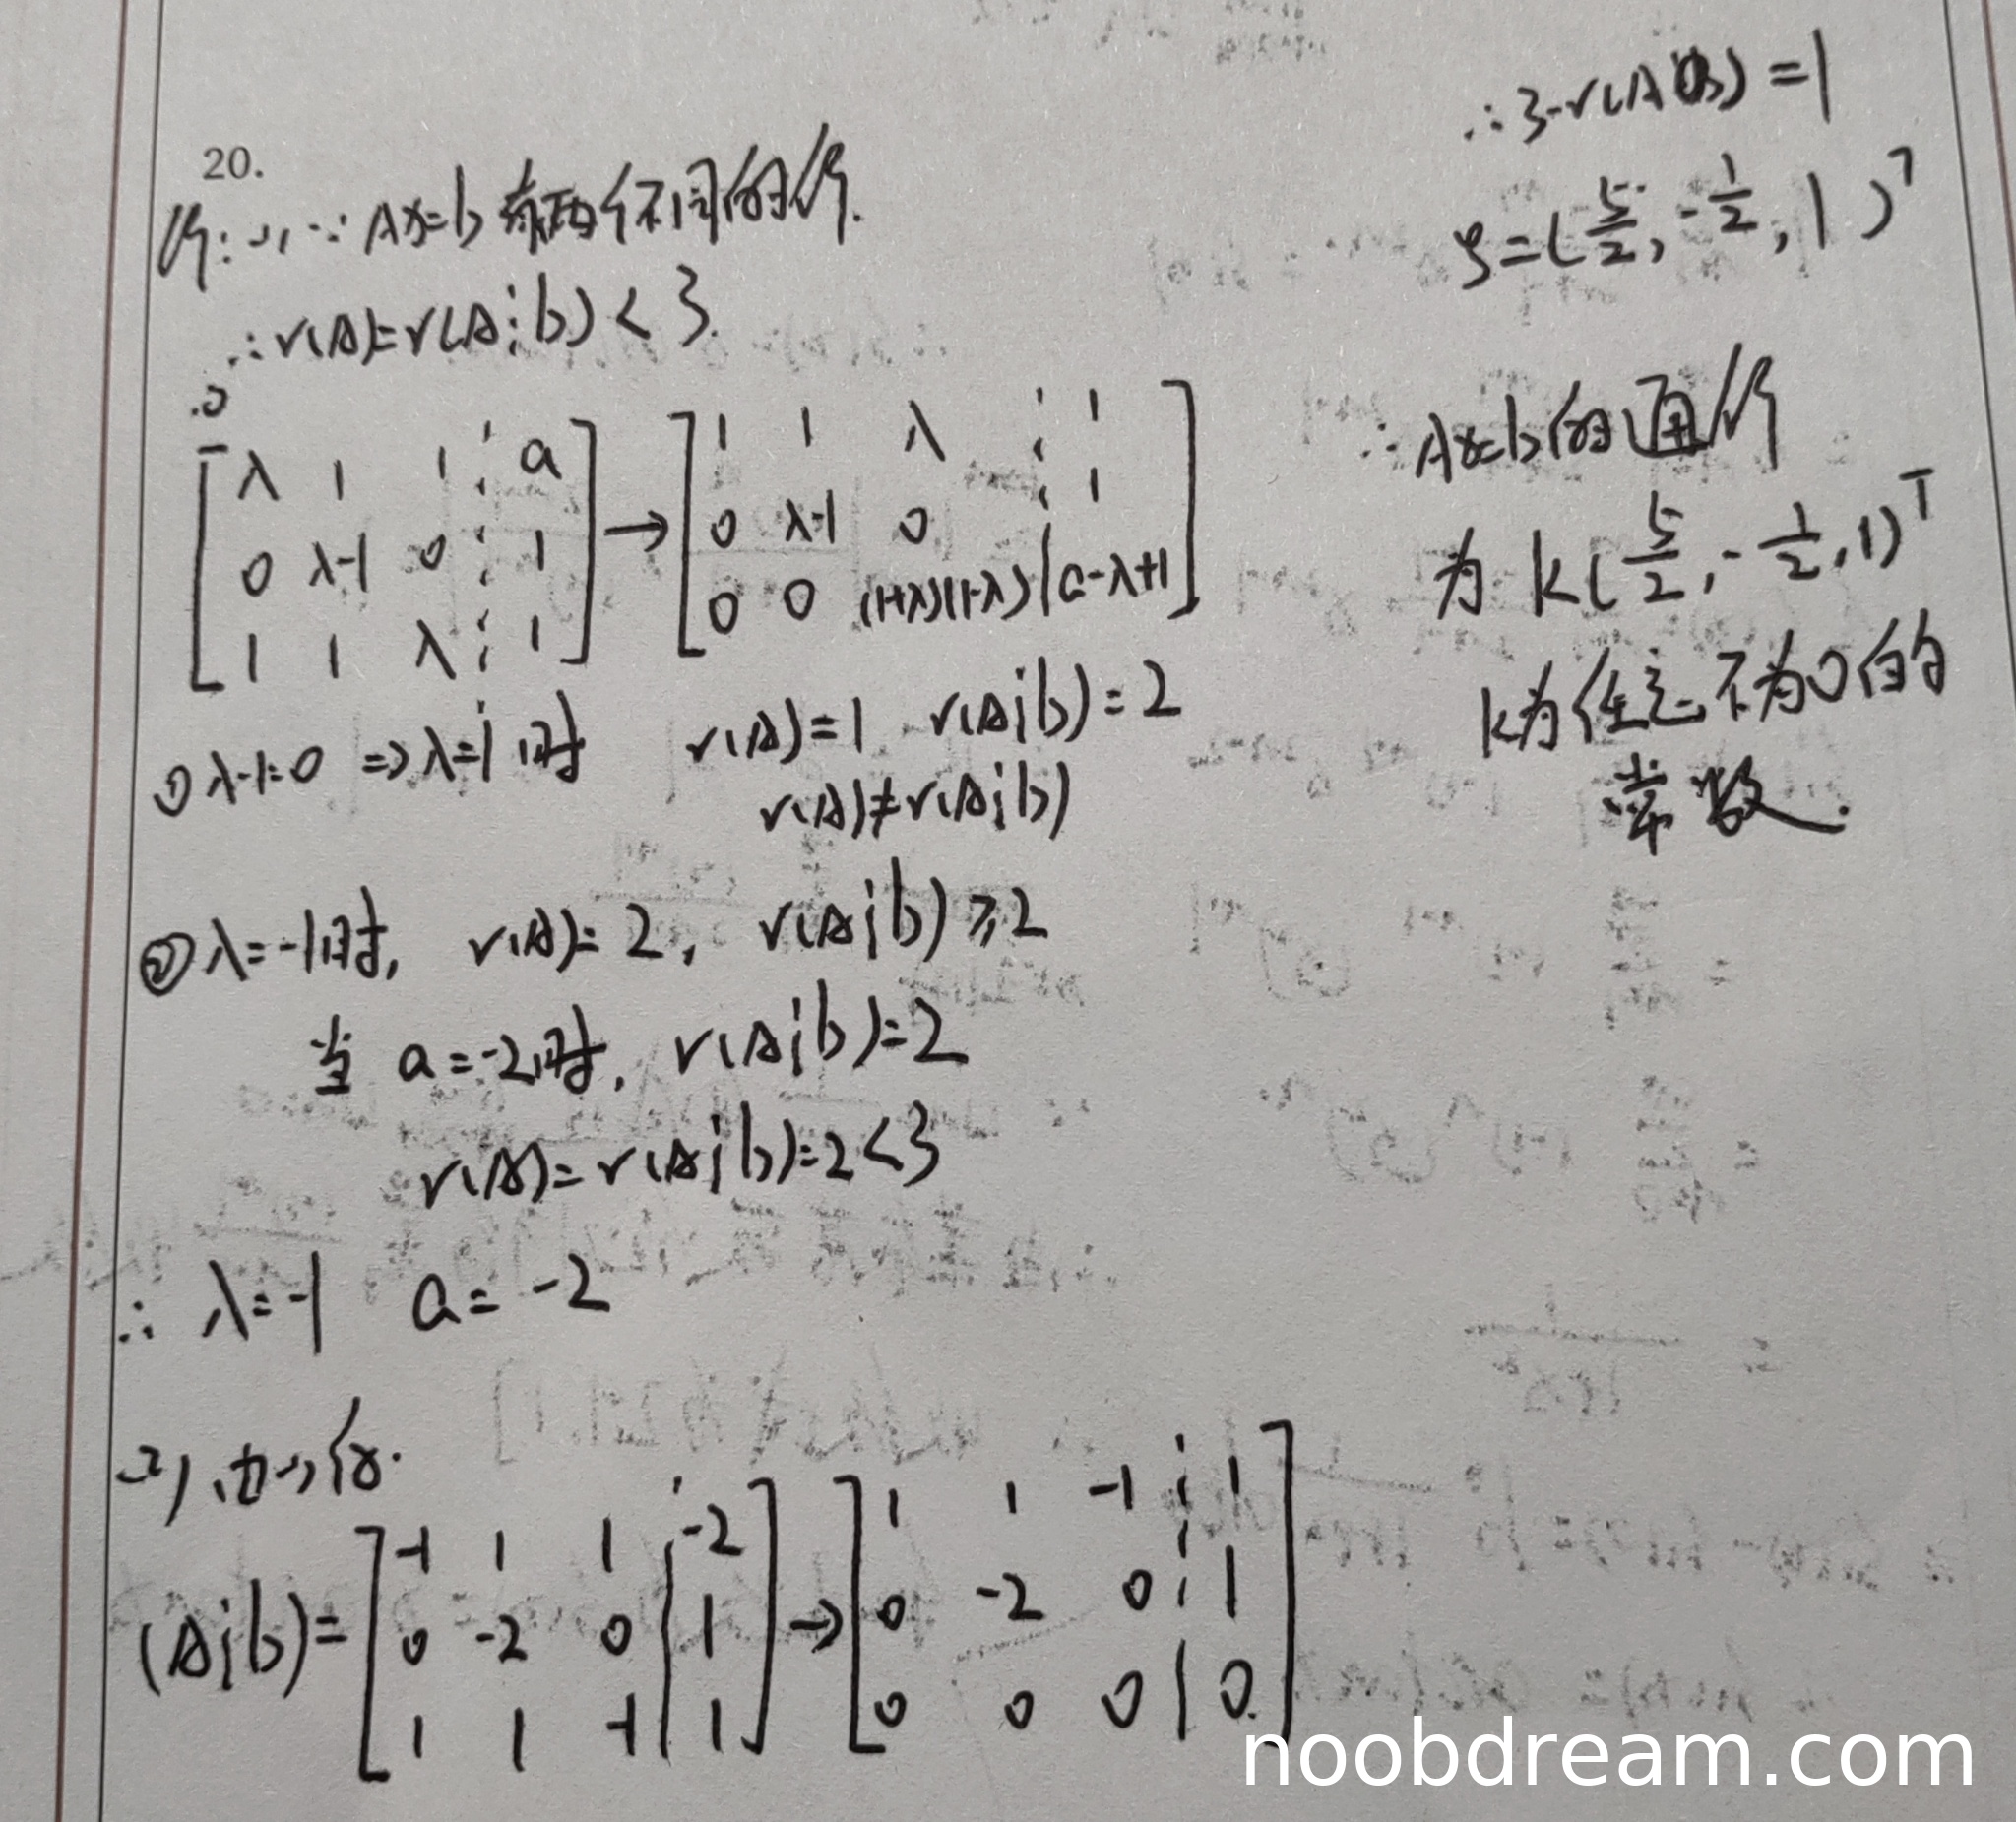 20.
解: (1) ∵ Ax=b 有两个不同的解.
∴ r(A)=r(A¦b) < 3.
[ λ 1 1 ¦ a ] → [ 1 1 λ ¦ 1 ]
[ 0 λ-1 0 ¦ 1 ] [ 0 λ-1 0 ¦ 1 ]
[ 1 1 λ ¦ 1 ] [ 0 0 (1+λ)(1-λ) | a-λ+1 ]
① λ-1=0 => λ=1 时 r(A)=1 r(A¦b)=2
r(A)≠r(A¦b)
② λ=-1时, r(A)=2, r(A¦b)≥2
当 a=-2时, r(A¦b)=2
r(A)=r(A¦b)=2<3
∴ λ=-1 a=-2
(2) 由(1)得.
(A¦b)= [ -1 1 1 ¦ -2 ] → [ 1 1 -1 ¦ 1 ]
[ 0 -2 0 | 1 ] [ 0 -2 0 ¦ 1 ]
[ 1 1 -1 | 1 ] [ 0 0 0 | 0 ]
∴ 3-r(A) =1
ξ=(5/2, -1/2, 1)^T
∴ Ax=b 的通解
为 k(5/2, -1/2, 1)^T
k为任意不为0的
常数.
noobdream.com